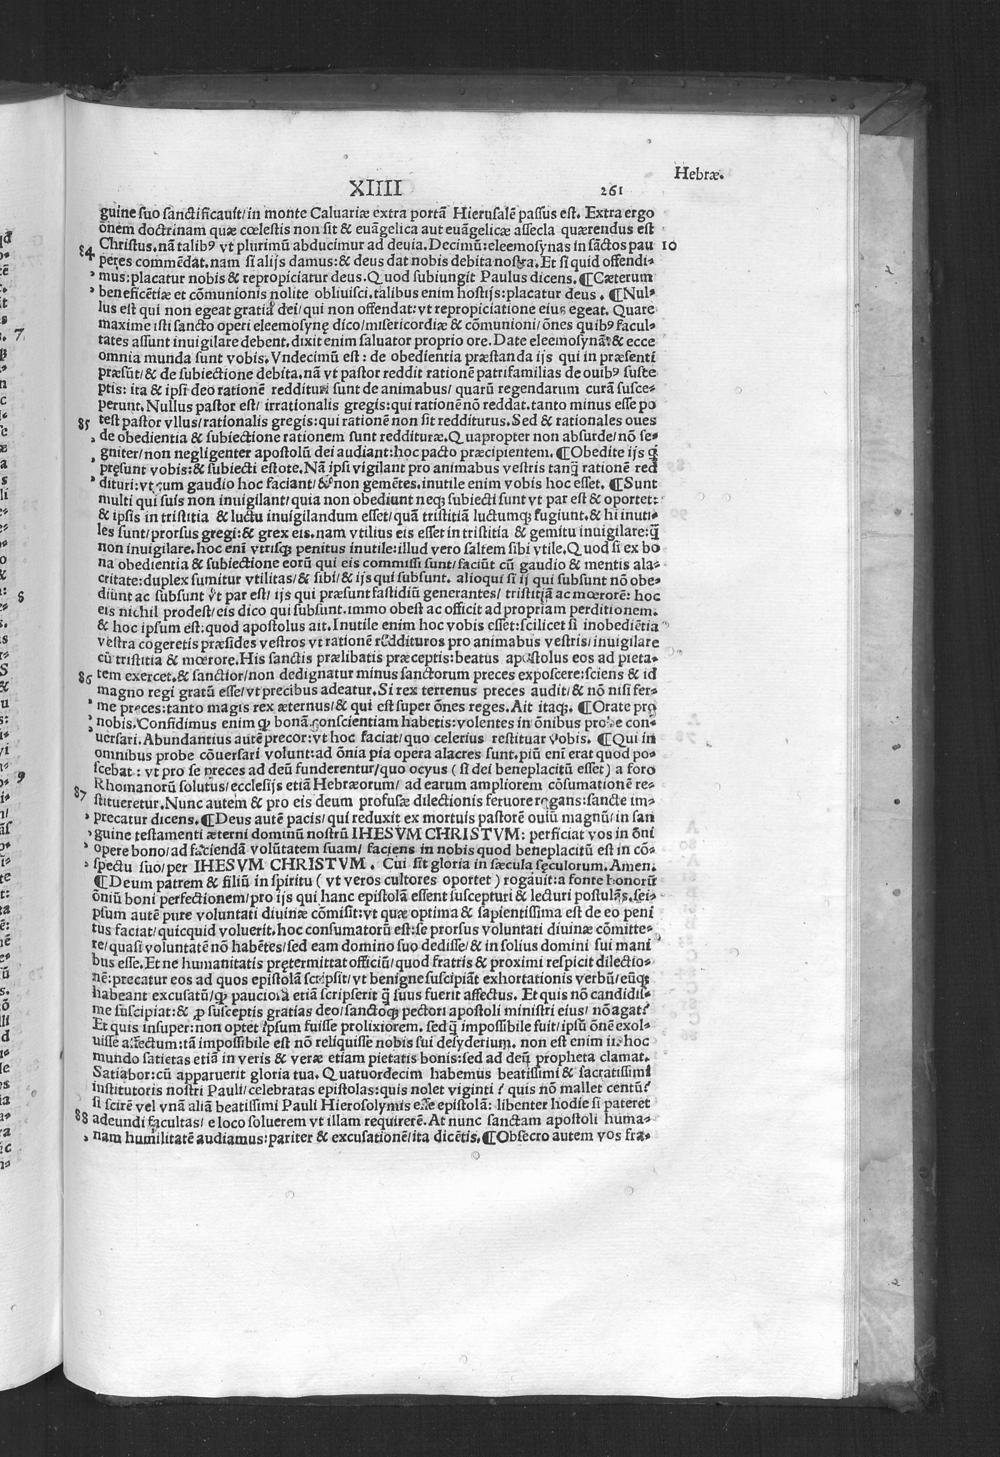 Hebræ.
XIIII 261
guine suo sanctificauit/in monte Caluariæ extra portã Hierusalẽ passus est. Extra ergo
õnem doctrinam quæ cœlestis non sit & euãgelica aut euãgelicæ assecla quærendus est
Christus.nã talibꝰ vt plurimũ abducimur ad deuia.Decimũ:eleemosynas in sãctos pau 10
84 peres commẽdat.nam si alijs damus:& deus dat nobis debita nostra.Et si quid offendi⸗
mus:placatur nobis & repropiciatur deus.Quod subiungit Paulus dicens.¶Cæterum
beneficẽtiæ et cõmunionis nolite obliuisci.talibus enim hostijs:placatur deus.¶Nul⸗
lus est qui non egeat gratia dei/qui non offendat:vt repropiciatione eius egeat. Quare
maxime isti sancto operi eleemosynę dico/misericordiæ & cõmunioni/õnes quibꝰ facul⸗
tates assunt inuigilare debent.dixit enim saluator proprio ore.Date eleemosynã:& ecce
omnia munda sunt vobis.Vndecimũ est: de obedientia præstanda ijs qui in præsenti
præsũt/& de subiectione debita.nã vt pastor reddit rationẽ patrifamilias de ouibꝰ susce
ptis: ita & ipsi deo rationẽ reddituri sunt de animabus/ quarũ regendarum curã susce⸗
perunt.Nullus pastor est/ irrationalis gregis:qui rationẽ nõ reddat.tanto minus esse po
85 test pastor vllus/rationalis gregis:qui rationẽ non sit redditurus.Sed & rationales oues
de obedientia & subiectione rationem sunt redditurę.Quapropter non absurde/nõ se⸗
gniter/non negligenter apostolũ dei audiant:hoc pacto præcipientem.¶Obedite ijs q̃
pręsunt vobis:& subiecti estote.Nã ipsi vigilant pro animabus vestris tanq̃ rationẽ red
dituri:vt cum gaudio hoc faciant/& non gemẽtes.inutile enim vobis hoc esset.¶Sunt
multi qui suis non inuigilant/quia non obediunt neqꝫ subiecti sunt vt par est & oportet:
& ipsis in tristitia & luctu inuigilandum esset/quã tristitiã luctumqꝫ fugiunt.& hi inuti⸗
les sunt/prorsus gregi:& grex eis.nam vtilius eis esset in tristitia & gemitu inuigilare:q̃
non inuigilare.hoc enĩ vtrisqꝫ penitus inutile:illud vero saltem sibi vtile.Quod si ex bo
na obedientia & subiectione eorũ qui eis commissi sunt/faciũt cũ gaudio & mentis ala⸗
critate:duplex sumitur vtilitas/& sibi/& ijs qui subsunt. alioqui si ij qui subsunt nõ obe⸗
diunt ac subsunt vt par est/ ijs qui præsunt fastidiũ generantes/ tristitiã ac mœrorẽ: hoc
eis nichil prodest/eis dico qui subsunt.immo obest ac officit ad propriam perditionem.
& hoc ipsum est:quod apostolus ait.Inutile enim hoc vobis esset:scilicet si inobediẽtia
vestra cogeretis præsides vestros vt rationẽ reddituros pro animabus vestris/inuigilare
cũ tristitia & mœrore.His sanctis prælibatis præceptis:beatus apostolus eos ad pieta⸗
86 tem exercet.& sanctior/non dedignatur minus sanctorum preces exposcere:sciens & id
magno regi gratũ esse/vt precibus adeatur.Si rex terrenus preces audit/& nõ nisi fer⸗
me preces:tanto magis rex æternus/& qui est super õnes reges.Ait itaqꝫ.¶Orate pro
nobis.Confidimus enim ꝙ bonã conscientiam habetis:volentes in õnibus probe con⸗
uersari.Abundantius autẽ precor:vt hoc faciat/quo celerius restituar vobis.¶Qui in
omnibus probe cõuersari volunt:ad õnia pia opera alacres sunt.piũ enĩ erat quod po⸗
scebat: vt pro se preces ad deũ funderentur/quo ocyus (si dei beneplacitũ esset) a foro
Rhomanorũ solutus/ecclesijs etiã Hebræorum/ ad earum ampliorem cõsumationẽ re⸗
87 stitueretur.Nunc autem & pro eis deum profusæ dilectionis feruore rogans:sancte im⸗
precatur dicens.¶Deus autẽ pacis/qui reduxit ex mortuis pastorẽ ouiũ magnũ/in san
guine testamenti æterni dominũ nostrũ IHESVM CHRISTVM: perficiat vos in õni
opere bono/ad faciendã volũtatem suam/ faciens in nobis quod beneplacitũ est in cõ⸗
spectu suo/per IHESVM CHRISTVM. Cui sit gloria in sæcula sęculorum.Amen.
¶Deum patrem & filiũ in spiritu (vt veros cultores oportet) rogauit:a fonte bonorũ
õniũ boni perfectionem/pro ijs qui hanc epistolã essent suscepturi & lecturi postulãs.sei⸗
psum autẽ pure voluntati diuinæ cõmisit:vt quæ optima & sapientissima est de eo peni
tus faciat/quicquid voluerit.hoc consumatorũ est:se prorsus voluntati diuinæ cõmitte⸗
re/quasi voluntatẽ nõ habẽtes/sed eam domino suo dedisse/& in solius domini sui mani
bus esse.Et ne humanitatis prętermittat officiũ/quod fratris & proximi respicit dilectio⸗
nẽ:precatur eos ad quos epistolã scripsit/vt benigne suscipiãt exhortationis verbũ/eũqꝫ
habeant excusatũ/ꝙ pauciora etiã scripserit q̃ suus fuerit affectus. Et quis nõ candidis⸗
me suscipiat:& ꝓ susceptis gratias deo/sanctoqꝫ pectori apostoli ministri eius/ nõ agat?
Et quis insuper:non optet ipsum fuisse prolixiorem. sed q̃ impossibile fuit/ipsũ õnẽ exol⸗
uisse affectum:tã impossibile est nõ reliquisse nobis sui desyderium. non est enim in hoc
mundo satietas etiã in veris & veræ etiam pietatis bonis:sed ad deũ propheta clamat.
Satiabor:cũ apparuerit gloria tua. Quatuordecim habemus beatissimi & sacratissimi
institutoris nostri Pauli/celebratas epistolas:quis nolet viginti? quis nõ mallet centũ?
si scirẽ vel vnã aliã beatissimi Pauli Hierosolymis esse epistolã: libenter hodie si pateret
88 adeundi facultas/ e loco soluerem vt illam requirerẽ. At nunc sanctam apostoli huma⸗
nam humilitatẽ audiamus:pariter & excusationẽ/ita dicẽtis.¶Obsecro autem vos fra⸗